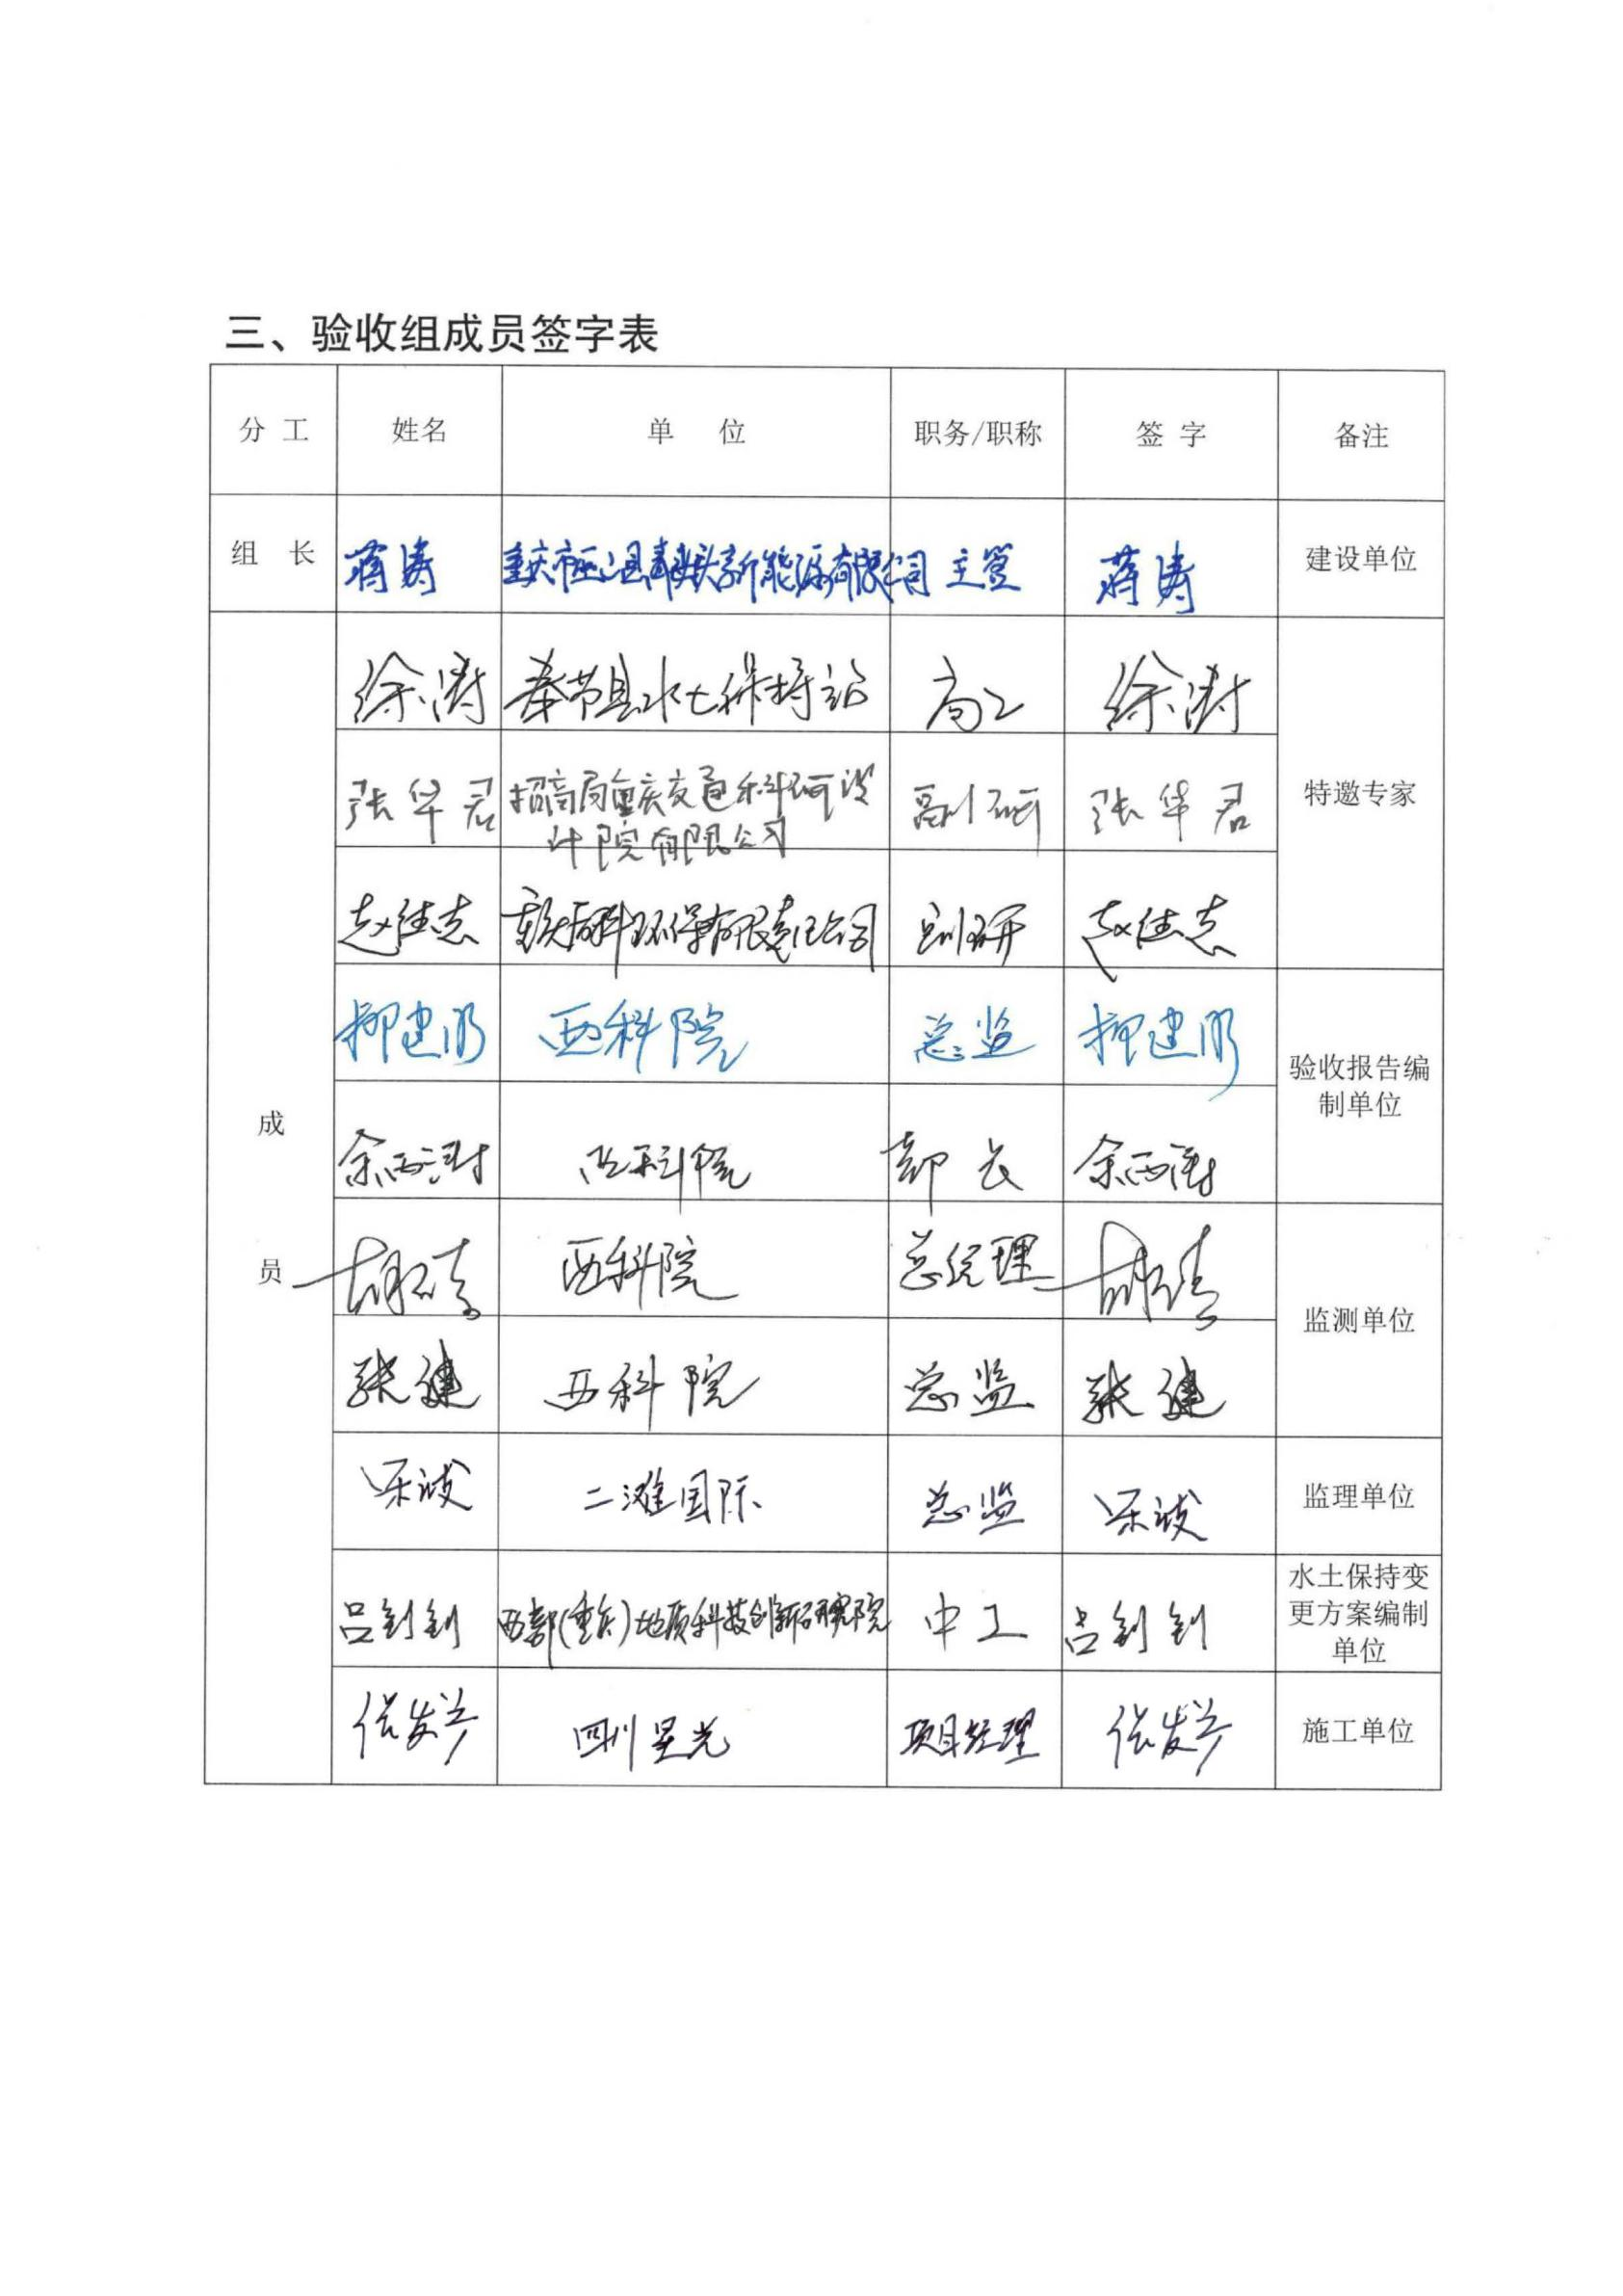 三、验收组成员签字表
分 工 姓名 单 位 职务/职称 签 字 备注
组 长 蒋涛 重庆市巫山县 新能源有限公司 主管 蒋涛 建设单位
成
员
徐涛 奉节县水土保持站 高工 徐涛
特邀专家
张华君 招商局重庆交通科研设 副研 张华君
计院有限公司
赵健志 环保有限责任公司 副研 赵健志
柳建 西科院 总监 柳建
验收报告编
制单位
余西 西科院 部长 余西
胡 西科院 总经理 胡
监测单位
张建 西科院 总监 张建
二滩国际 总监 监理单位
吕钊钊 西部(重庆)地质科技创新研究院 中工 吕钊钊
水土保持变
更方案编制
单位
张发兴 四川星光 项目经理 张发兴 施工单位